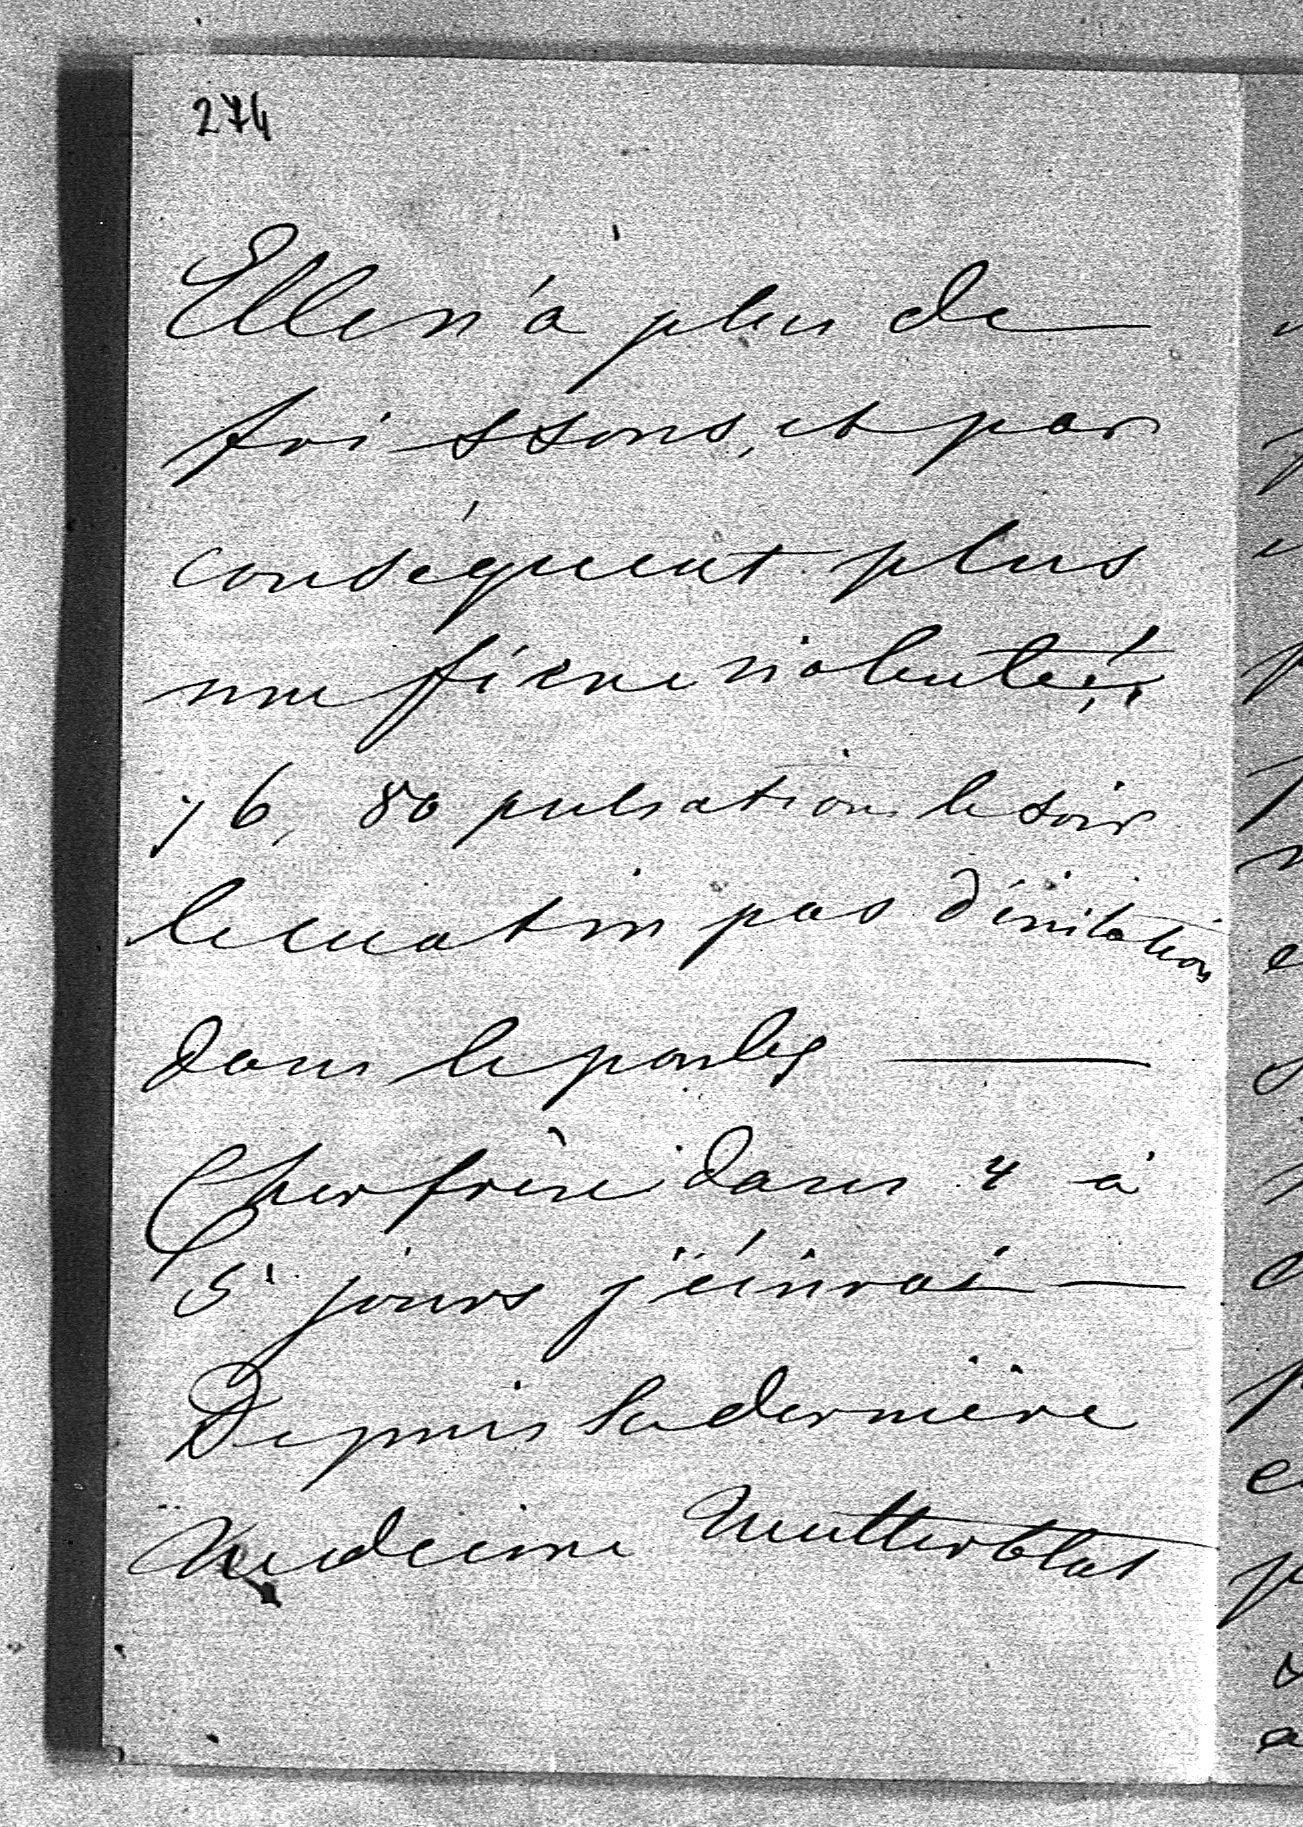 274
Elle n'a plus de
frissons, et par
conséquent plus
une fièvre violente!!
76, 80 pulsation le soir
le matin pas d'irritation
dans le pouls
Cher frère dans 4 à
5 jours j'écirrai
Depuis la dernière
Medecine Mutterblat